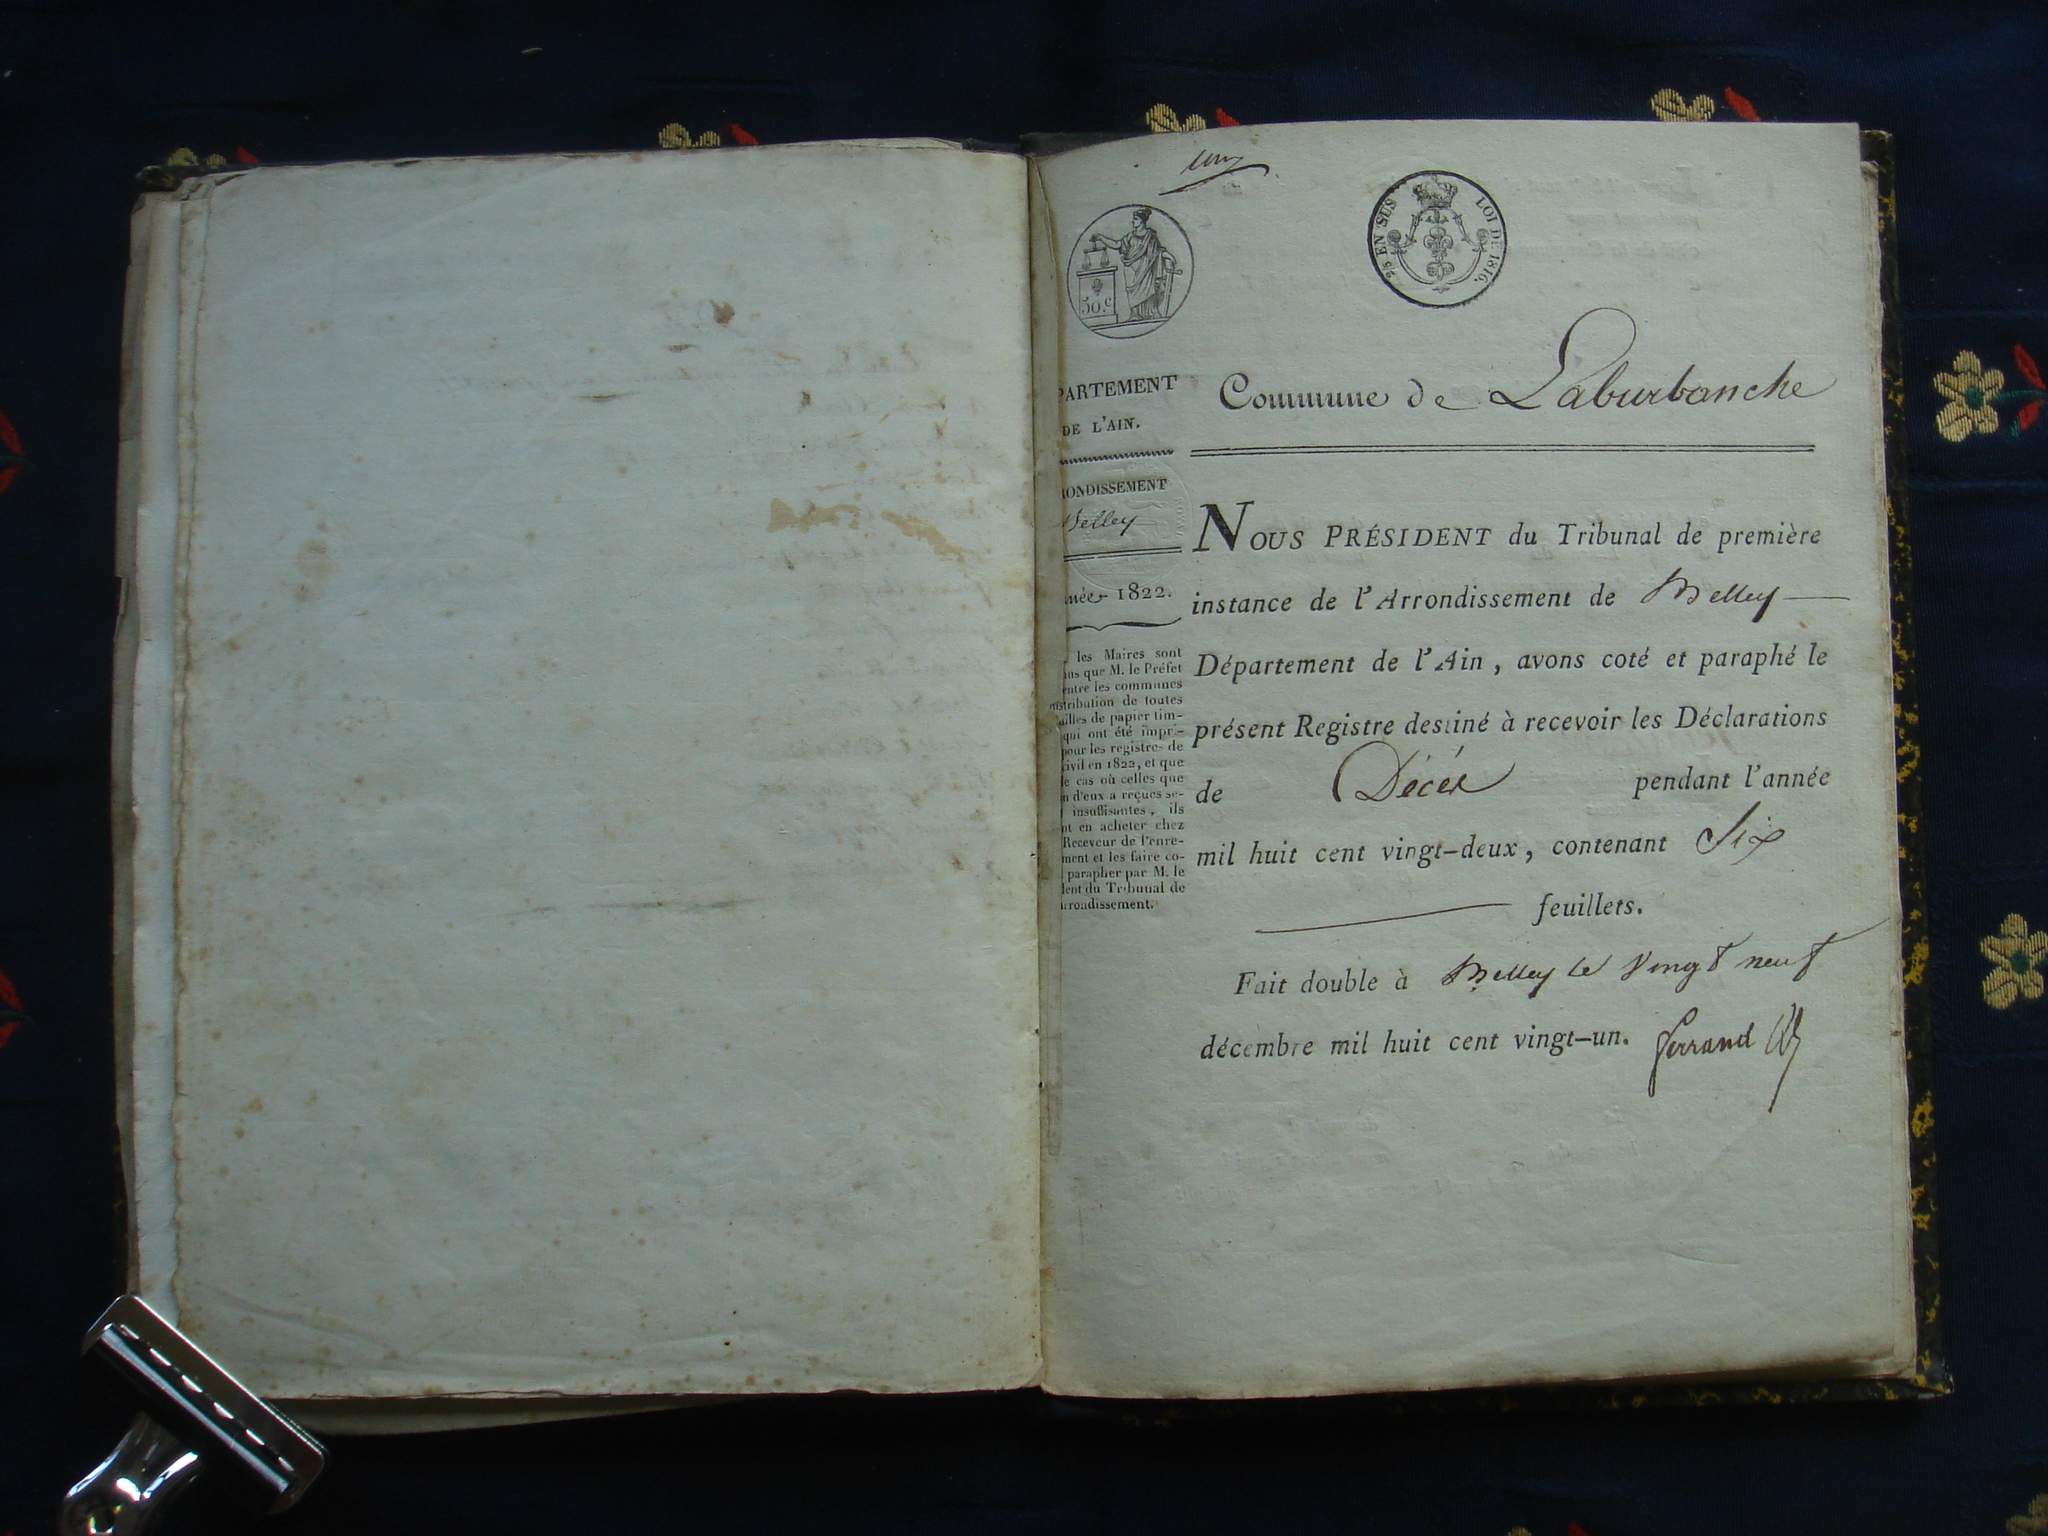 un
50.c
25 EN SUS LOI DE 1816.
PARTEMENT
DE L'AIN.
RONDISSEMENT
Belley
née 1822.
les Maires sont
que M. le Préfet
entre les communes
stribution de toutes
uilles de papier tim-
qui ont été impri-
pour les registres de
civil en 1822, et que
le cas où celles que
n d'eux a reçues se-
insuffisantes, ils
nt en acheter chez
Receveur de l'enre-
ment et les faire co-
parapher par M. le
dent du Tribunal de
rrondissement.
Commune de Laburbanche
NOUS PRÉSIDENT du Tribunal de première
instance de l'Arrondissement de Belley
Département de l'Ain, avons coté et paraphé le
présent Registre destiné à recevoir les Déclarations
de Décès pendant l'année
mil huit cent vingt-deux, contenant Six
feuillets.
Fait double à Belley le Vingt neuf
décembre mil huit cent vingt-un. ferrand